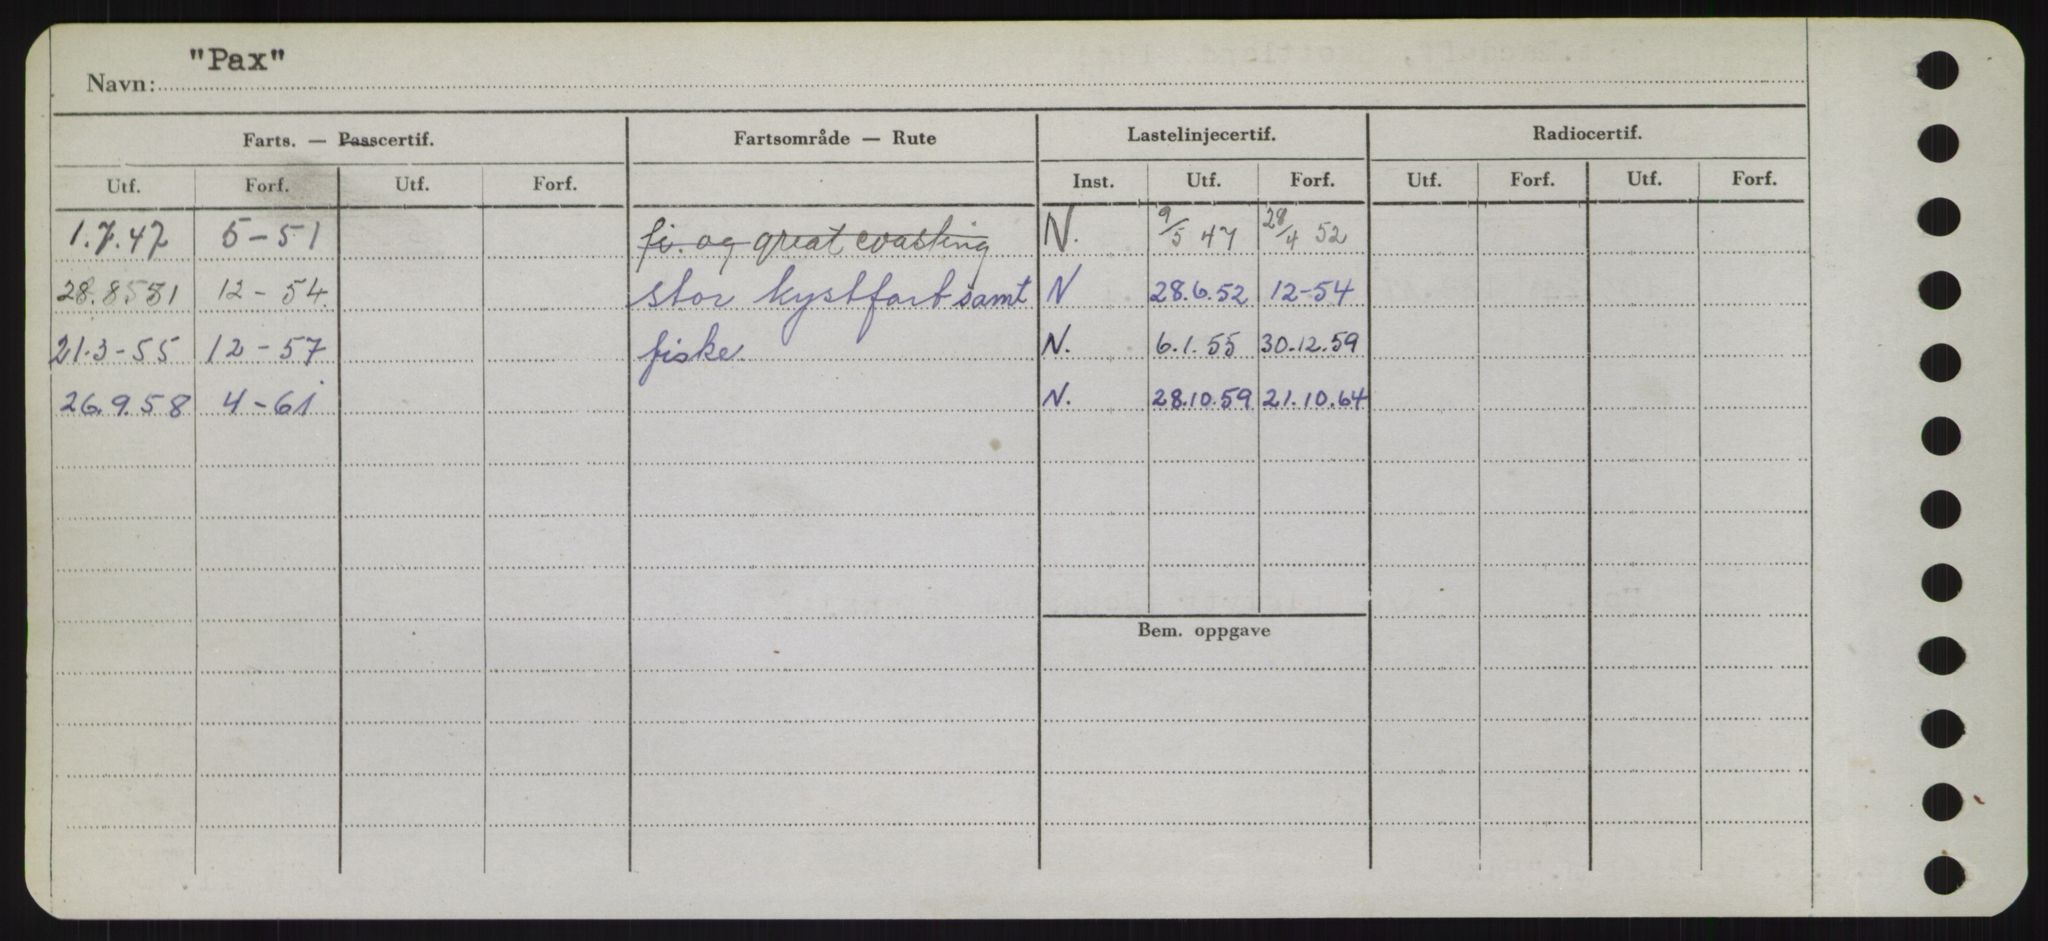 "Pax"
Navn:
Farts. — Passcertif. Fartsområde — Rute Lastelinjecertif. Radiocertif.
Utf. Forf. Utf. Forf. Inst. Utf. Forf. Utf. Forf. Utf. Forf.
1.7.47 5-51 fi. og great coasting N. 9/5 47 28/4 52
28.8551 12-54 stor kystfart samt N 28.6.52 12-54
21.3-55 12-57 fiske. N. 6.1.55 30.12.59
26.9.58 4-61 N. 28.10.59 21.10.64
Bem. oppgave